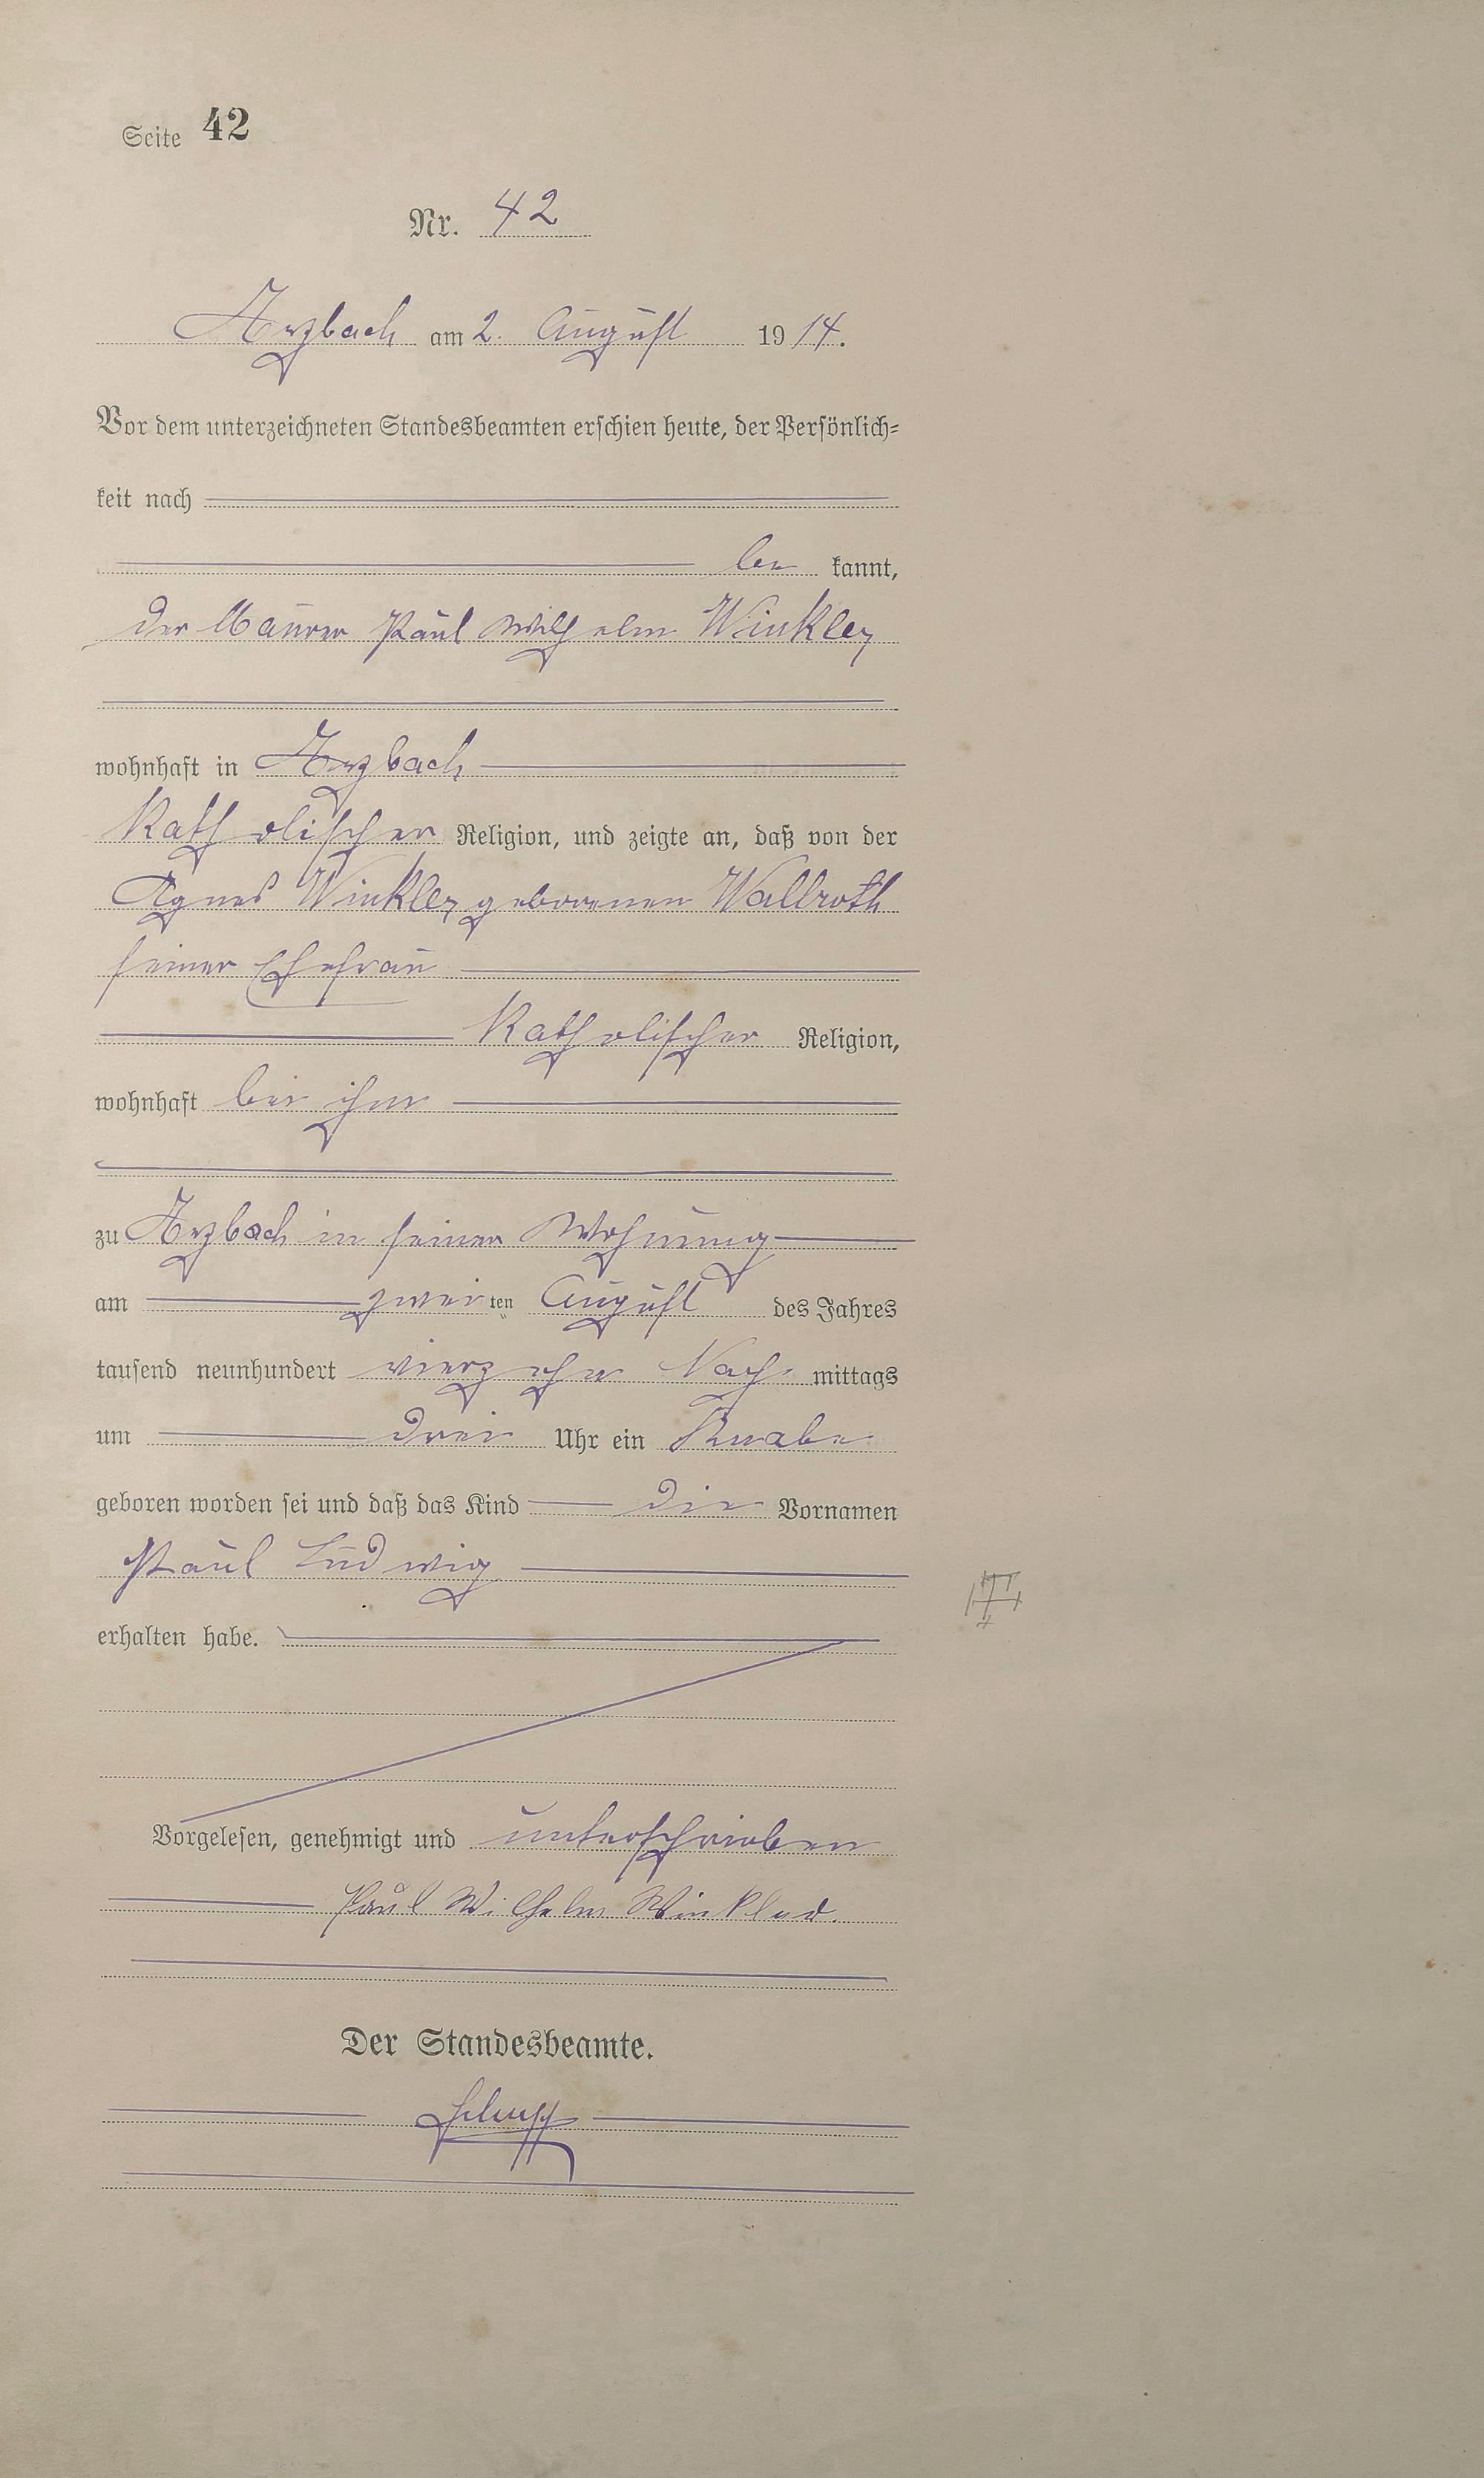 Seite 42
Nr. 42
Arzbach am 2. August 1914.
Vor dem unterzeichneten Standesbeamten erschien heute, der Persönlich-
keit nach
be kannt,
der Maurer Paul Wilhelm Winkler
wohnhaft in Arzbach
Katholischer Religion, und zeigte an, daß von der
Agnes Winkler geborenen Wallroth
seiner Ehefrau
Katholischer Religion,
wohnhaft bei ihm
zu Arzbach in seiner Wohnung
am zwei ten August des Jahres
tausend neunhundert vierzehn Nach mittags
um drei Uhr ein Knabe
geboren worden sei und daß das Kind die Vornamen
Paul Ludwig
erhalten habe.
Vorgelesen, genehmigt und unterschrieben
Paul Wilhelm Winkler.
Der Standesbeamte.